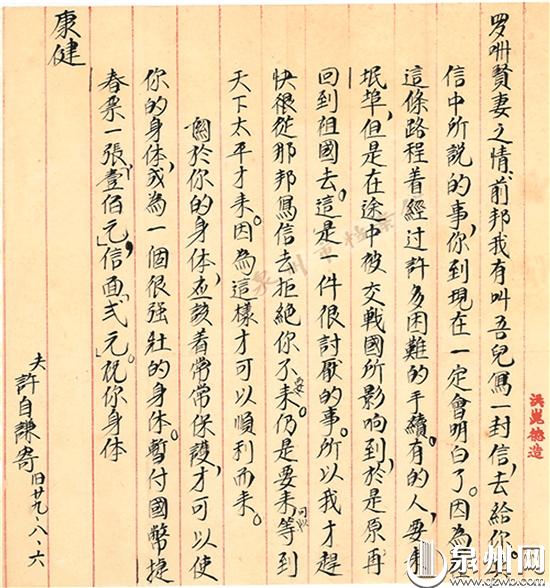 罗珊賢妻之情，前邦我有叫吾兒寫一封信，去給你。
信中所說的事，你到現在一定會明白了。因為
這條路程着經过許多困難的手續。有的人，要來
垊埠，但是在途中被交戰國所影响到，於是原再
回到祖國去。這是一件很討厭的事。所以我才趕
快很從那邦寫信去拒絕你不要來。仍是要來，等到
天下太平才來。因為這樣才可以順利而來。
關於你的身体，应該着常常保護，才可以使
你的身体，成為一個很强壯的身体。暫付國幣捷
春票一張，「壹佰元」，信面「弍元」。祝你身体
康健
夫許自謙寄
旧廿九、八、六
洪崑德造
泉州市檔案
泉州网
www.qzwb.com